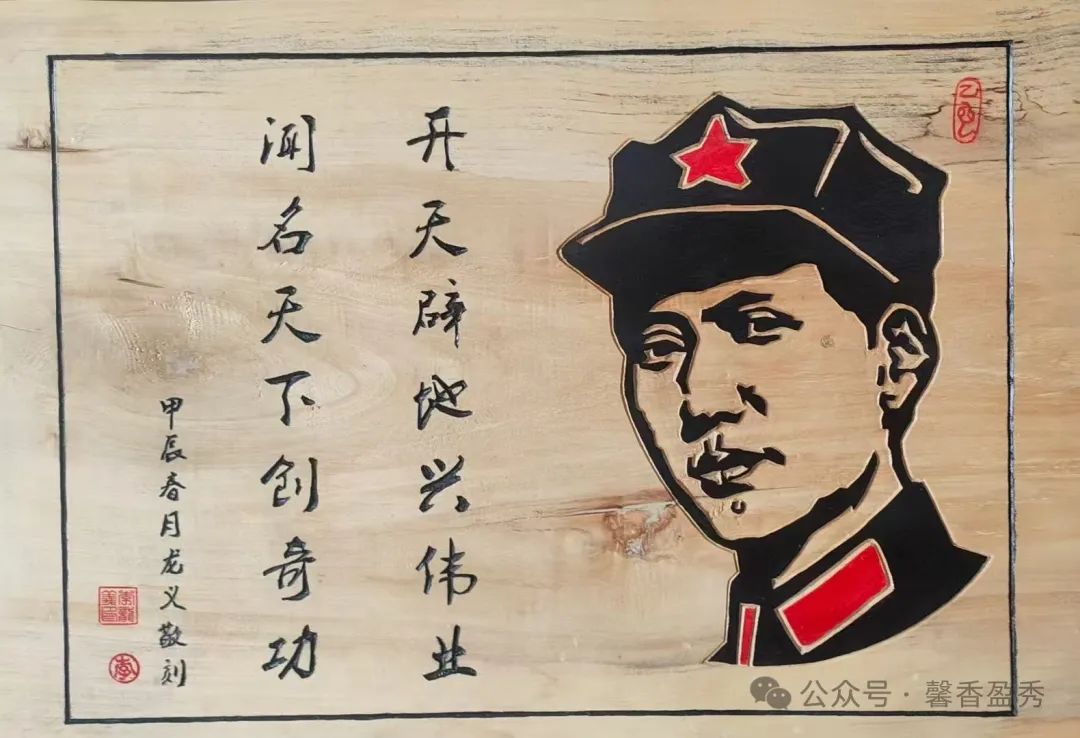 开天辟地兴伟业
闻名天下创奇功
甲辰春月龙义敬刻
李龙义印
李
公众号·馨香盈秀